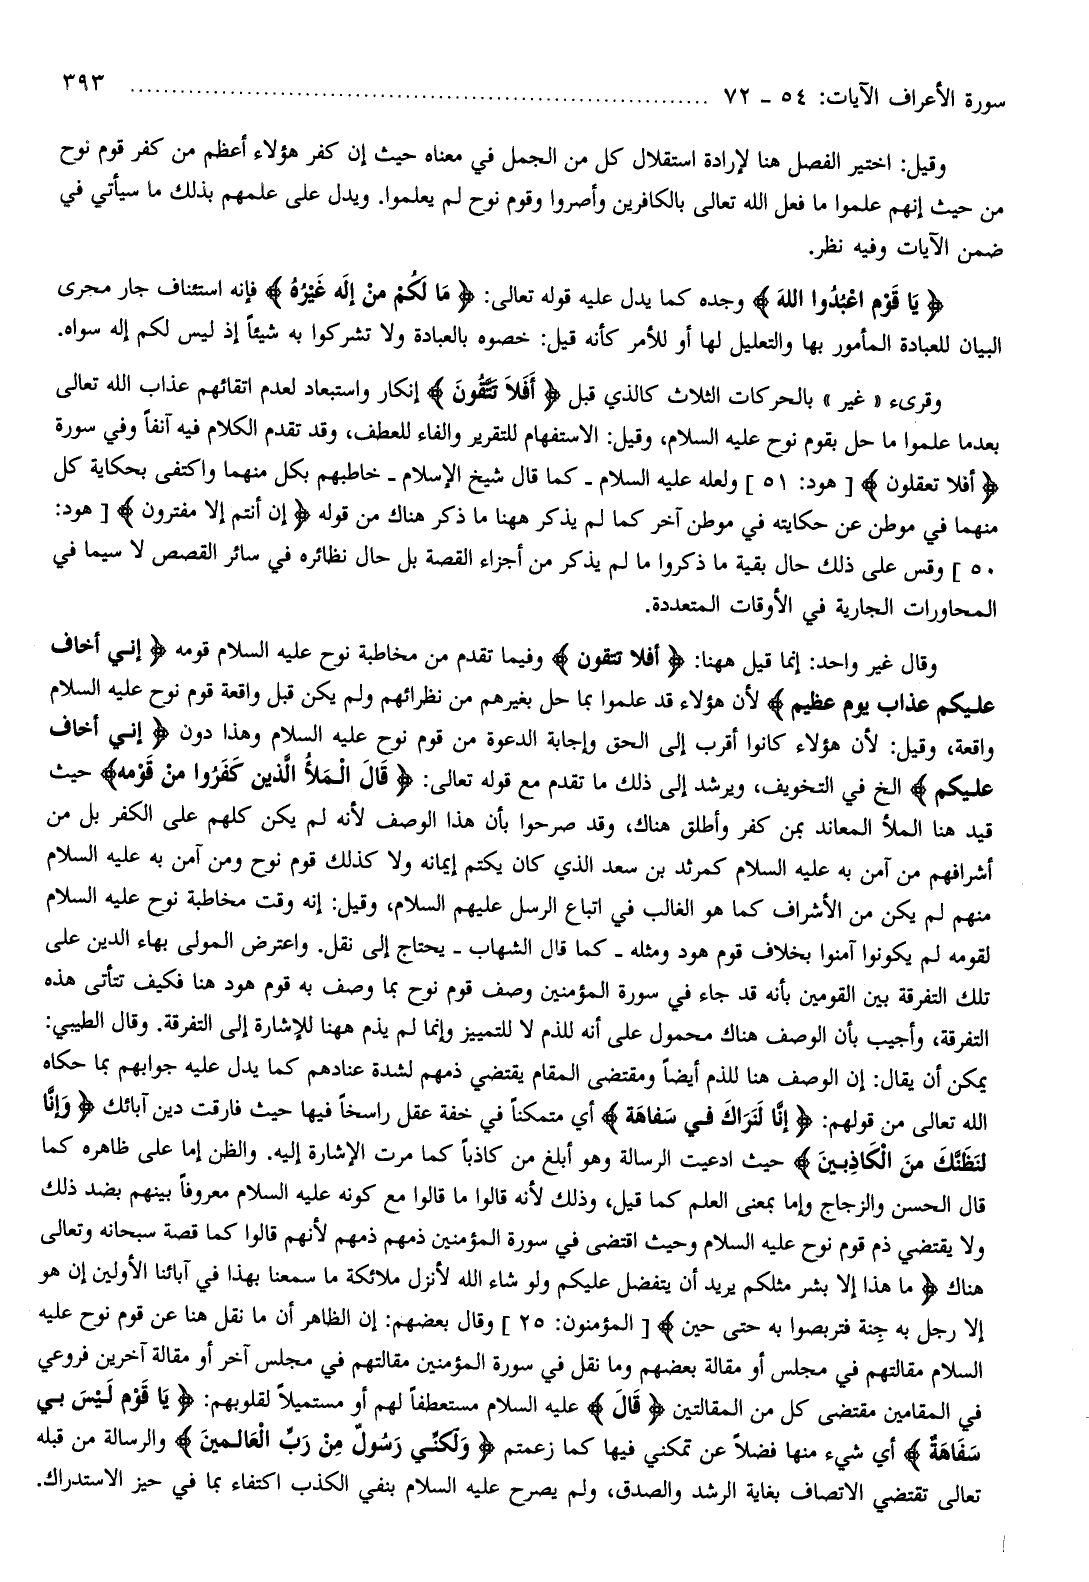 سورة الأعراف الآيات: ٥٤ ـ ٧٢ ........................................................................ ٣٩٣
وقيل: اختير الفصل هنا لإرادة استقلال كل من الجمل في معناه حيث إن كفر هؤلاء أعظم من كفر قوم نوح
من حيث إنهم علموا ما فعل الله تعالى بالكافرين وأصروا وقوم نوح لم يعلموا. ويدل على علمهم بذلك ما سيأتي في
ضمن الآيات وفيه نظر.
﴿ يَا قَوْمِ اعْبُدُوا اللهَ ﴾ وحده كما يدل عليه قوله تعالى: ﴿ مَا لَكُمْ مِنْ إِلَه غَيْرُهُ ﴾ فإنه استئناف جار مجرى
البيان للعبادة المأمور بها والتعليل لها أو للأمر كأنه قيل: خصوه بالعبادة ولا تشركوا به شيئاً إذ ليس لكم إله سواه.
وقرىء « غير » بالحركات الثلاث كالذي قبل ﴿ أَفَلاَ تَتَّقُونَ ﴾ إنكار واستبعاد لعدم اتقائهم عذاب الله تعالى
بعدما علموا ما حل بقوم نوح عليه السلام، وقيل: الاستفهام للتقرير والفاء للعطف، وقد تقدم الكلام فيه آنفاً وفي سورة
﴿ أفلا تعقلون ﴾ [ هود: ٥١ ] ولعله عليه السلام ـ كما قال شيخ الإسلام ـ خاطبهم بكل منهما واكتفى بحكاية كل
منهما في موطن عن حكايته في موطن آخر كما لم يذكر ههنا ما ذكر هناك من قوله ﴿ إن أنتم إلا مفترون ﴾ [ هود:
٥٠ ] وقس على ذلك حال بقية ما ذكروا ما لم يذكر من أجزاء القصة بل حال نظائره في سائر القصص لا سيما في
المحاورات الجارية في الأوقات المتعددة.
وقال غير واحد: إنما قيل ههنا: ﴿ أفلا تتقون ﴾ وفيما تقدم من مخاطبة نوح عليه السلام قومه ﴿ إني أخاف
عليكم عذاب يوم عظيم ﴾ لأن هؤلاء قد علموا بما حل بغيرهم من نظرائهم ولم يكن قبل واقعة قوم نوح عليه السلام
واقعة، وقيل: لأن هؤلاء كانوا أقرب إلى الحق وإجابة الدعوة من قوم نوح عليه السلام وهذا دون ﴿ إني أخاف
عليكم ﴾ الخ في التخويف، ويرشد إلى ذلك ما تقدم مع قوله تعالى: ﴿ قَالَ الْمَلأُ الَّذين كَفَرُوا منْ قَوْمه﴾ حيث
قيد هنا الملأ المعاند بمن كفر وأطلق هناك، وقد صرحوا بأن هذا الوصف لأنه لم يكن كلهم على الكفر بل من
أشرافهم من آمن به عليه السلام كمرثد بن سعد الذي كان يكتم إيمانه ولا كذلك قوم نوح ومن آمن به عليه السلام
منهم لم يكن من الأشراف كما هو الغالب في اتباع الرسل عليهم السلام، وقيل: إنه وقت مخاطبة نوح عليه السلام
لقومه لم يكونوا آمنوا بخلاف قوم هود ومثله ـ كما قال الشهاب ـ يحتاج إلى نقل. واعترض المولى بهاء الدين على
تلك التفرقة بين القومين بأنه قد جاء في سورة المؤمنين وصف قوم نوح بما وصف به قوم هود هنا فكيف تتأتى هذه
التفرقة، وأجيب بأن الوصف هناك محمول على أنه للذم لا للتمييز وإنما لم يذم ههنا للإشارة إلى التفرقة. وقال الطيبي:
يمكن أن يقال: إن الوصف هنا للذم أيضاً ومقتضى المقام يقتضي ذمهم لشدة عنادهم كما يدل عليه جوابهم بما حكاه
الله تعالى من قولهم: ﴿ إنَّا لَنَرَاكَ في سَفاهَة ﴾ أي متمكناً في خفة عقل راسخاً فيها حيث فارقت دين آبائك ﴿ وَإنَّا
لنَظنُّكَ منَ الْكَاذِبِينَ ﴾ حيث ادعيت الرسالة وهو أبلغ من كاذباً كما مرت الإشارة إليه. والظن إما على ظاهره كما
قال الحسن والزجاج وإما بمعنى العلم كما قيل، وذلك لأنه قالوا ما قالوا مع كونه عليه السلام معروفاً بينهم بضد ذلك
ولا يقتضي ذم قوم نوح عليه السلام وحيث اقتضى في سورة المؤمنين ذمهم ذمهم لأنهم قالوا كما قصة سبحانه وتعالى
هناك ﴿ ما هذا إلا بشر مثلكم يريد أن يتفضل عليكم ولو شاء الله لأنزل ملائكة ما سمعنا بهذا في آبائنا الأولين إن هو
إلا رجل به جِنة فتربصوا به حتى حين ﴾ [ المؤمنون: ٢٥ ] وقال بعضهم: إن الظاهر أن ما نقل هنا عن قوم نوح عليه
السلام مقالتهم في مجلس أو مقالة بعضهم وما نقل في سورة المؤمنين مقالتهم في مجلس آخر أو مقالة آخرين فروعي
في المقامين مقتضى كل من المقالتين ﴿ قَالَ ﴾ عليه السلام مستعطفاً لهم أو مستميلاً لقلوبهم: ﴿ يَا قَوْم لَيْسَ بي
سَفَاهَةٌ ﴾ أي شيء منها فضلاً عن تمكني فيها كما زعمتم ﴿ وَلَكنِّي رَسُولٌ مِنْ رَبِّ الْعَالَمينَ ﴾ والرسالة من قبله
تعالى تقتضي الاتصاف بغاية الرشد والصدق، ولم يصرح عليه السلام بنفي الكذب اكتفاء بما في حيز الاستدراك.